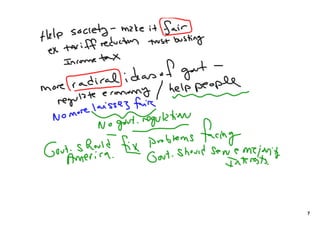 Help society - make it fair
ex tariff reduction trust busting
Income tax
more radical ideas of govt -
regulate economy / help people
No more laissez faire
No govt. regulation
Govt. should fix problems facing
America. Govt. should serve majority
Interests.
7